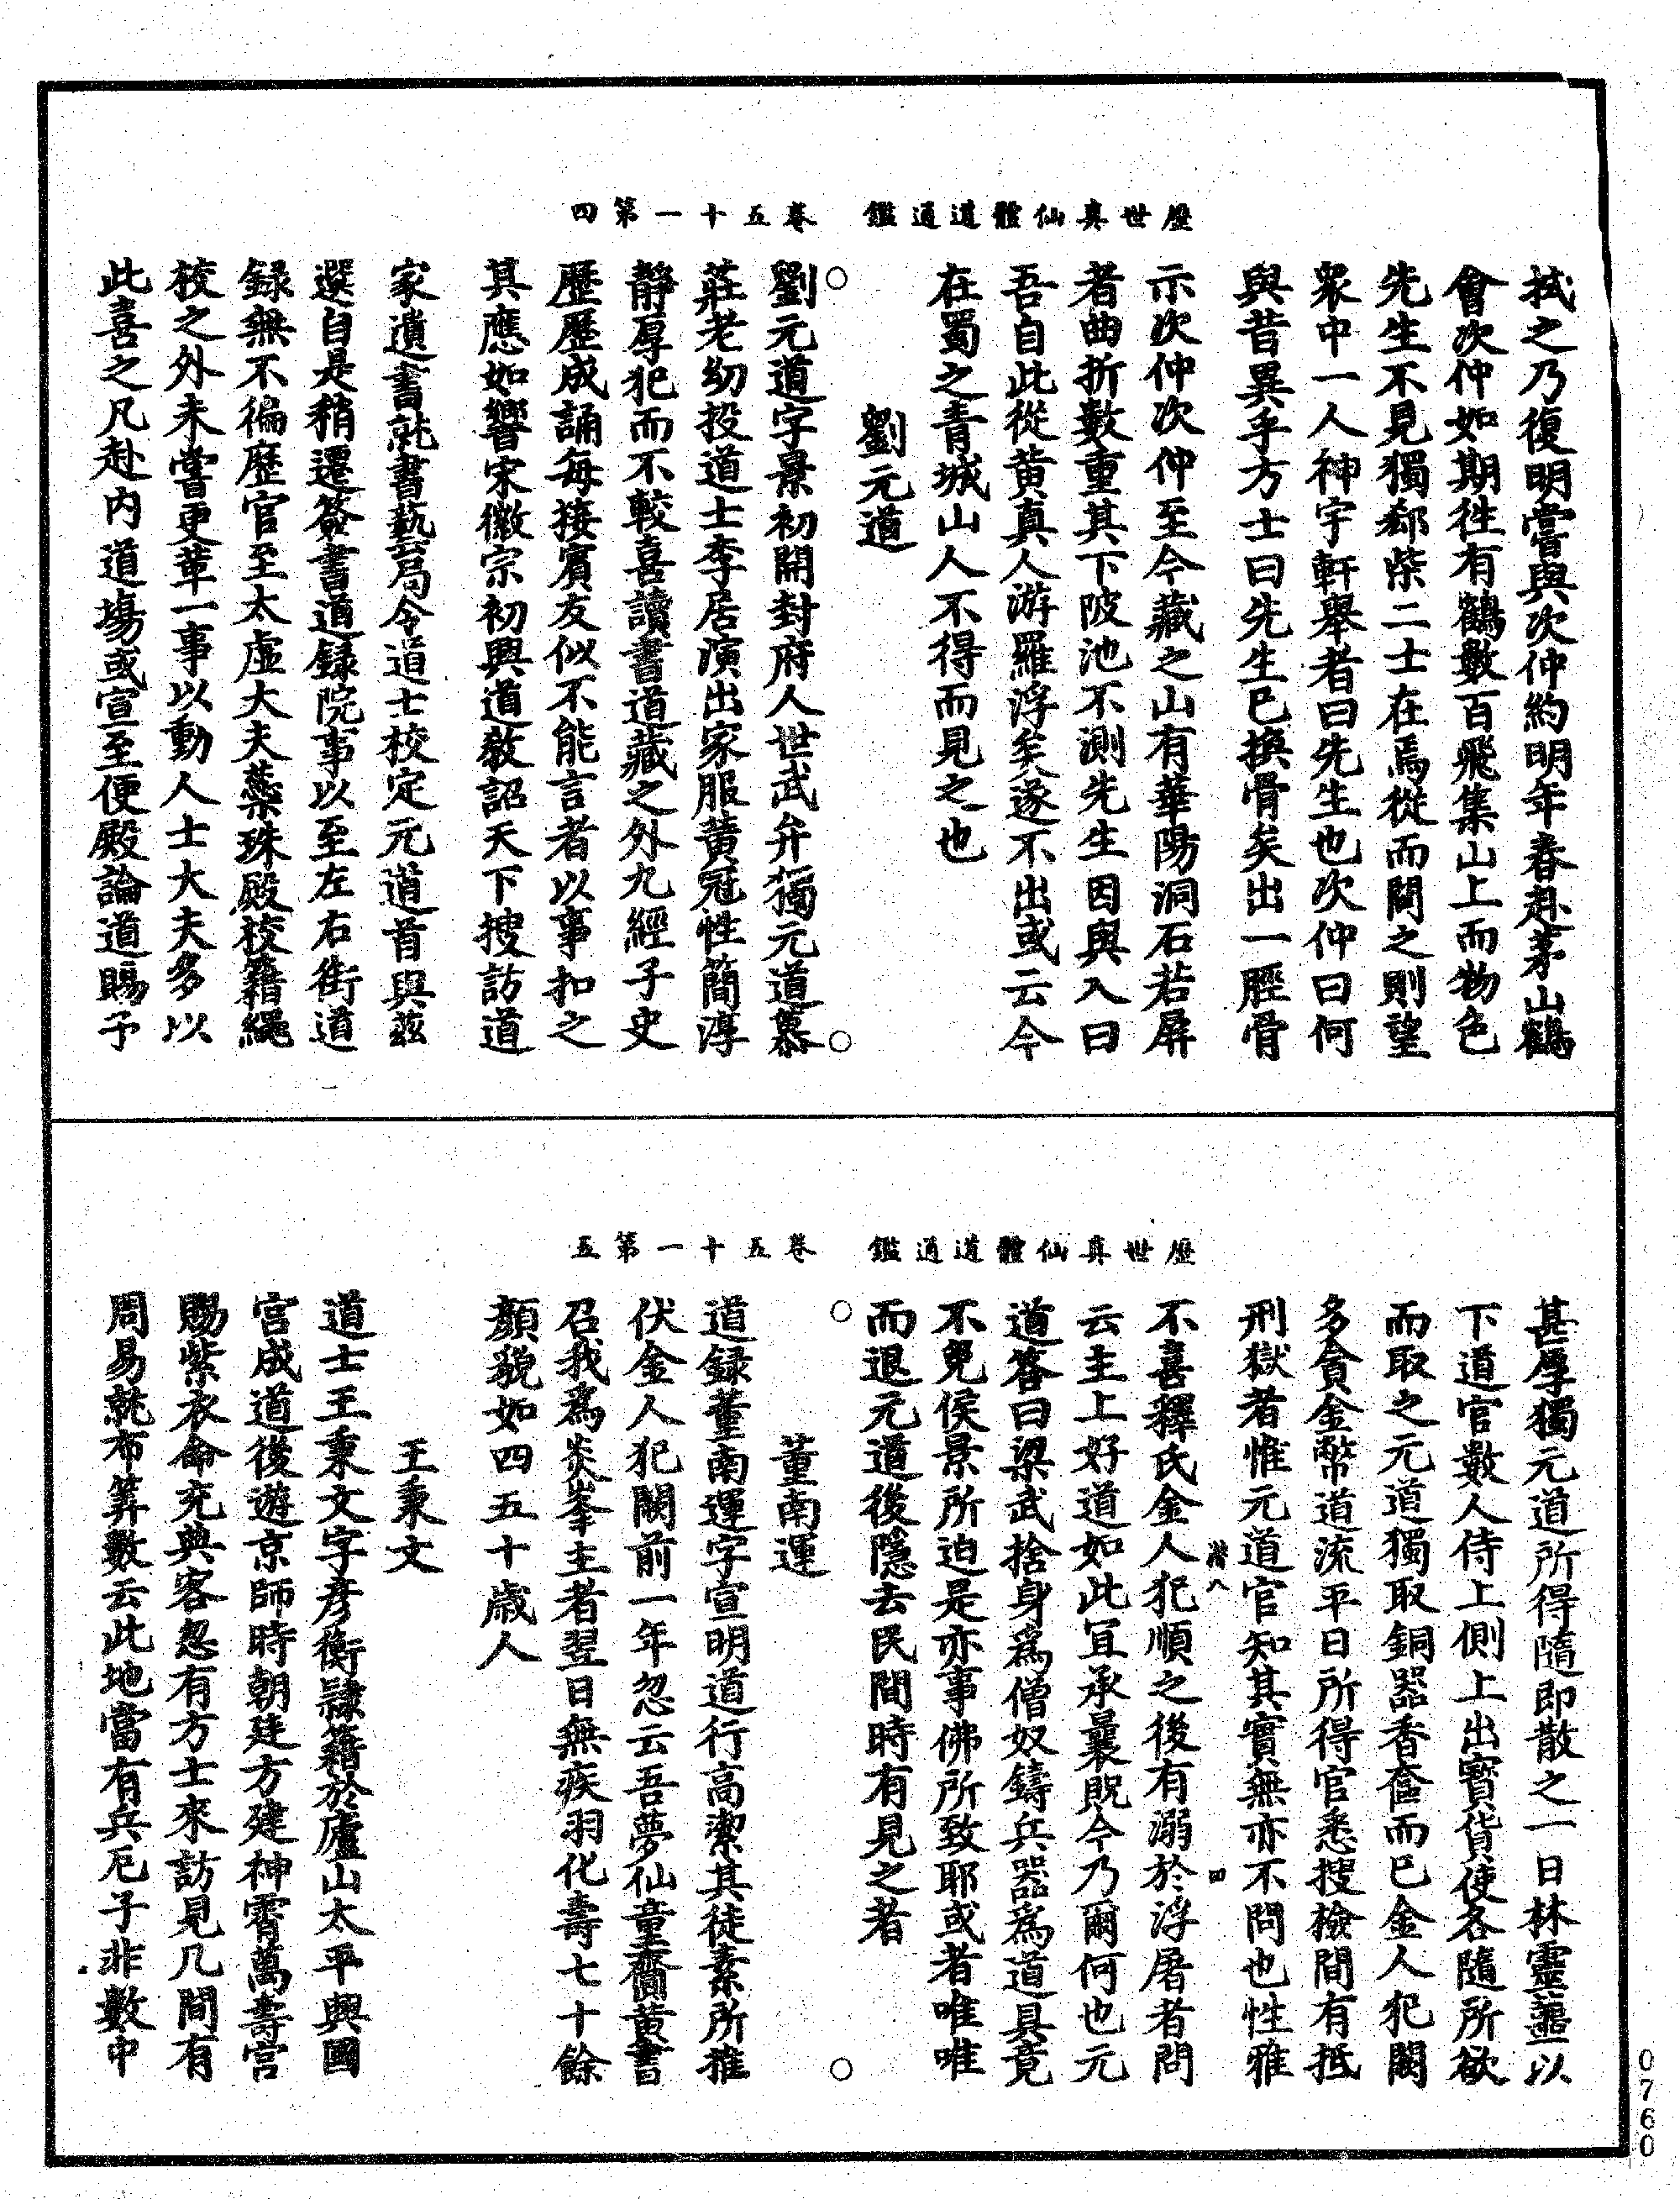 歷世真仙體道通鑑　卷五十一第四
拭之乃復明嘗與次仲約明年春赴茅山鶴
會次仲如期徃有鶴數百飛集山上而物色
先生不見獨郄柴二士在焉從而閱之則望
衆中一人神宇軒舉者曰先生也次仲曰何
與昔異乎方士曰先生已換骨矣出一脛骨
示次仲次仲至今藏之山有華陽洞石若屏
者曲折數重其下陂池不測先生因與入曰
吾自此從黃真人游羅浮矣遂不出或云今
在蜀之青城山人不得而見之也
劉元道
○劉元道字景初開封府人世武弁獨元道慕○
莊老幼投道士李居演出家服黃冠性簡淳
靜厚犯而不較喜讀書道藏之外九經子史
歷歷成誦每接賓友似不能言者以事扣之
其應如響宋徽宗初興道教詔天下搜訪道
家遺書就書藝局令道士校定元道首與茲
選自是稍遷簽書道録院事以至左右街道
録無不徧歷官至太虛大夫蘂珠殿校籍繩
校之外未嘗更輩一事以動人士大夫多以
此喜之凡赴內道場或宣至便殿論道賜予
歷世真仙體道通鑑　卷五十一第五
甚厚獨元道所得隨即散之一日林靈蘁以
下道官數人侍上側上出寶貨使各隨所欲
而取之元道獨取銅器香奩而已金人犯闕
多貪金幣道流平日所得官悉搜檢間有抵
刑獄者惟元道官知其實無亦不問也性雅
不喜釋氏金人犯順之後有溺於浮屠者問
云主上好道如此冝承曩貺今乃爾何也元
道答曰梁武捨身爲僧奴鑄兵器爲道具竟
不免侯景所迫是亦事佛所致耶或者唯唯
而退元道後隱去民間時有見之者
○　董南運　○
道録董南運字宣明道行高潔其徒素所推
伏金人犯闕前一年忽云吾夢仙童齎黃書
召我爲炎峯主者翌日無疾羽化壽七十餘
顏貌如四五十歲人
王秉文
道士王秉文字彥衡隷籍於廬山太平興國
宮成道後遊京師時朝廷方建神霄萬壽宮
賜紫衣命充典客忽有方士來訪見几間有
周易就布筭數云此地當有兵厄子非數中
0760